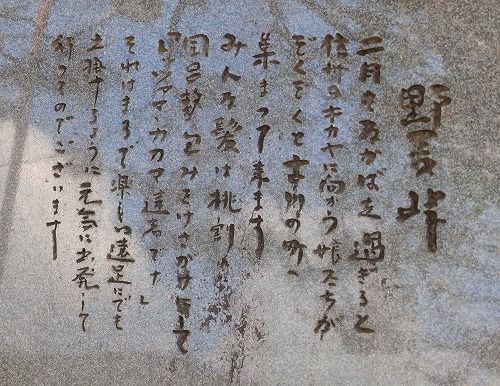 野麦峠
二月もなかばを過ぎると
信州のキカヤに向かう娘たちが
ぞくぞくと古川の町へ
集まって来ます
みんな髪は桃割れ
風呂敷包みをけさがけにして
「トッツァマ、カカマ達者でナ」
それはまるで楽しい遠足にでも
出掛けるように元気に出発して
行ったのでございます